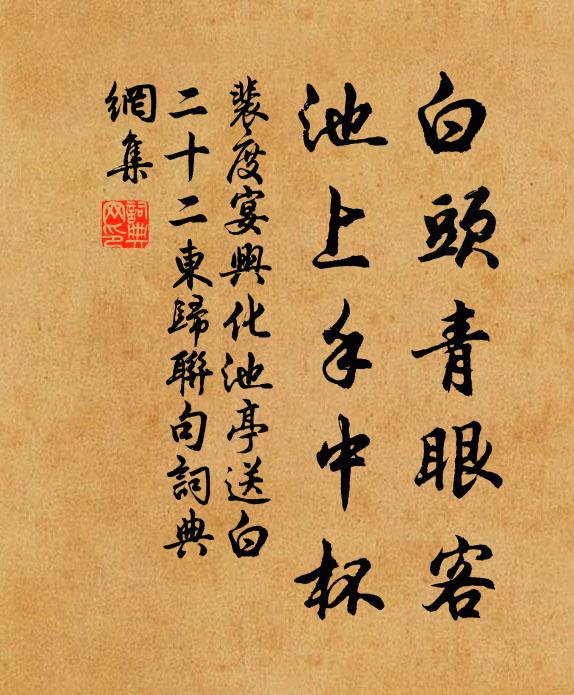 白頭青眼客
池上手中杯
裴度宴興化池亭送白
二十二東歸聯句詞典
網集
詞典網印